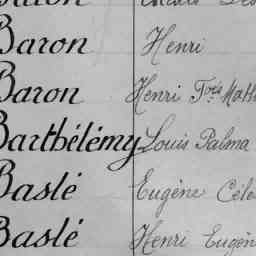 Baron Henri
Baron Henri Fois Math
Barthélémy Louis Palma
Baslé Eugène Céle
Baslé Henri Eugèn